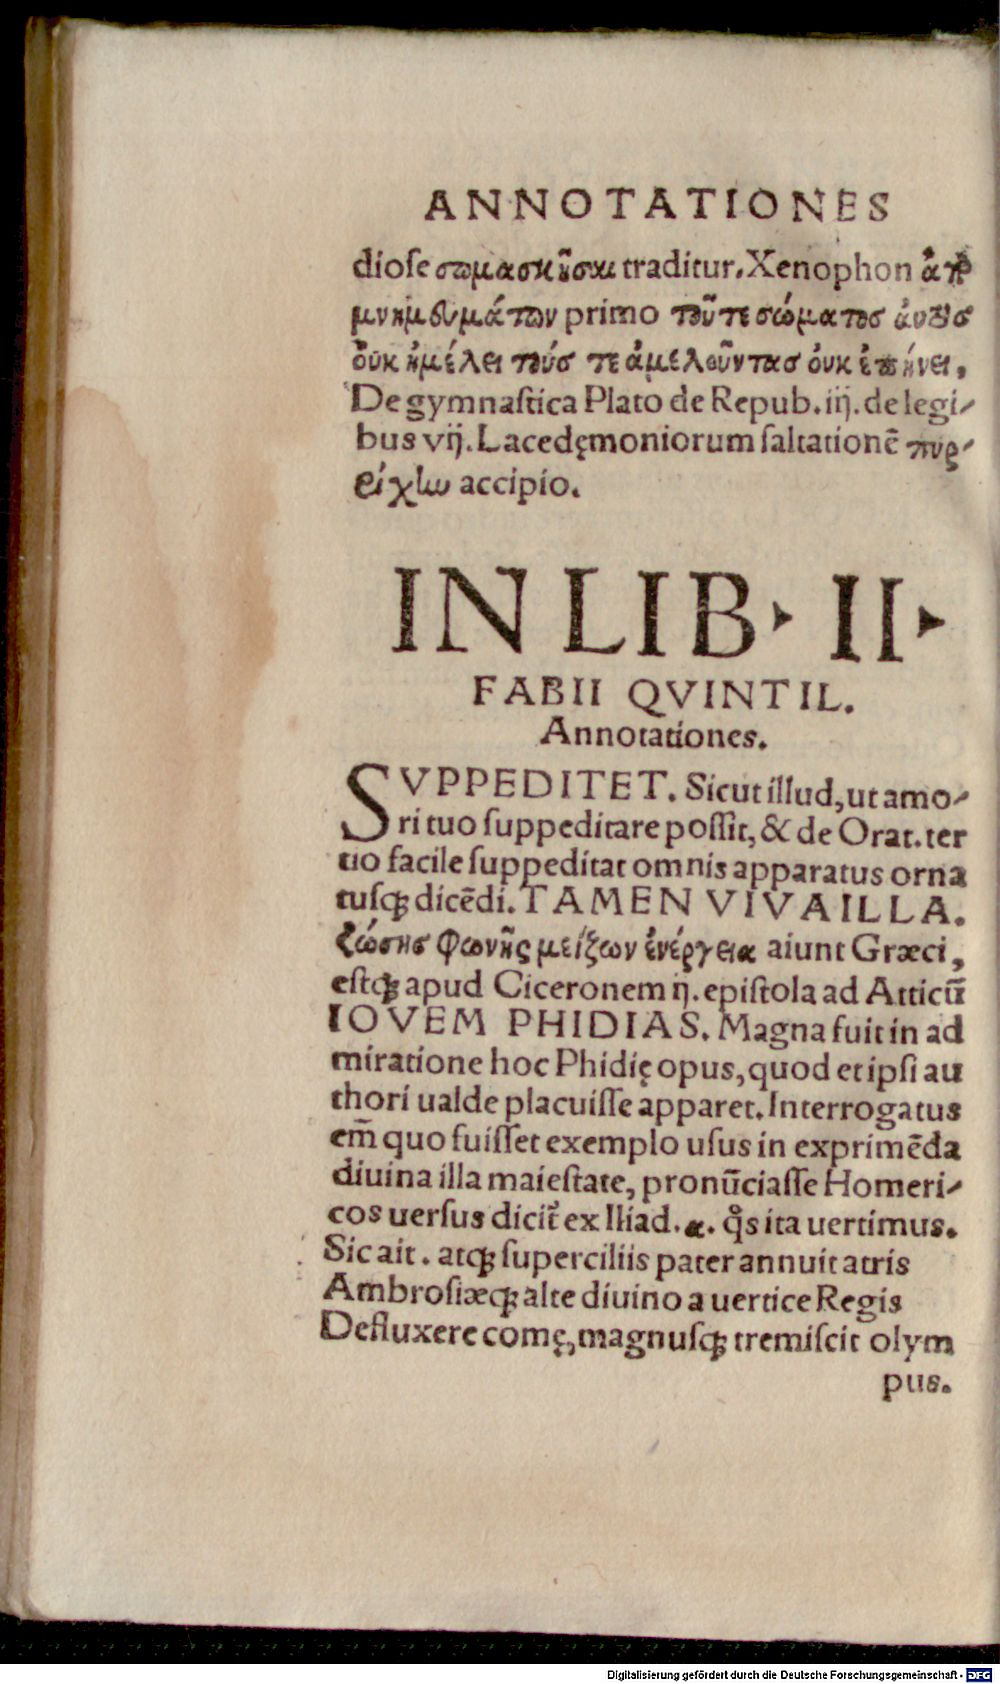 ANNOTATIONES
diose σωμασκῆσαι traditur. Xenophon ἀπ
μνημονευμάτων primo τοῦ τε σώματος αὐτὸσ
οὐκ ἠμέλει τούσ τε ἀμελοῦντασ οὐκ ἐπήνει,
De gymnastica Plato de Repub. iij. de legi-
bus vij. Lacedęmoniorum saltationē πυρ-
ρίχην accipio.
IN LIB. II.
FABII QVINTIL.
Annotationes.
SVPPEDITET. Sicut illud, ut amo-
ri tuo suppeditare possit, & de Orat. ter
tio facile suppeditat omnis apparatus orna
tusq; dicēdi. TAMEN VIVA ILLA.
ζώσησ φωνῆς μείζων ἐνέργεια aiunt Græci,
estq; apud Ciceronem ij. epistola ad Atticū
IOVEM PHIDIAS. Magna fuit in ad
miratione hoc Phidię opus, quod et ipsi au
thori ualde placuisse apparet. Interrogatus
em̄ quo fuisset exemplo usus in exprimēda
diuina illa maiestate, pronūciasse Homeri-
cos uersus dicit̃ ex Iliad. α. q̊s ita uertimus.
Sic ait. atq; superciliis pater annuit atris
Ambrosiæq; alte diuino a uertice Regis
Defluxere comę, magnusq; tremiscit olym
pus.
Digitalisierung gefördert durch die Deutsche Forschungsgemeinschaft - DFG